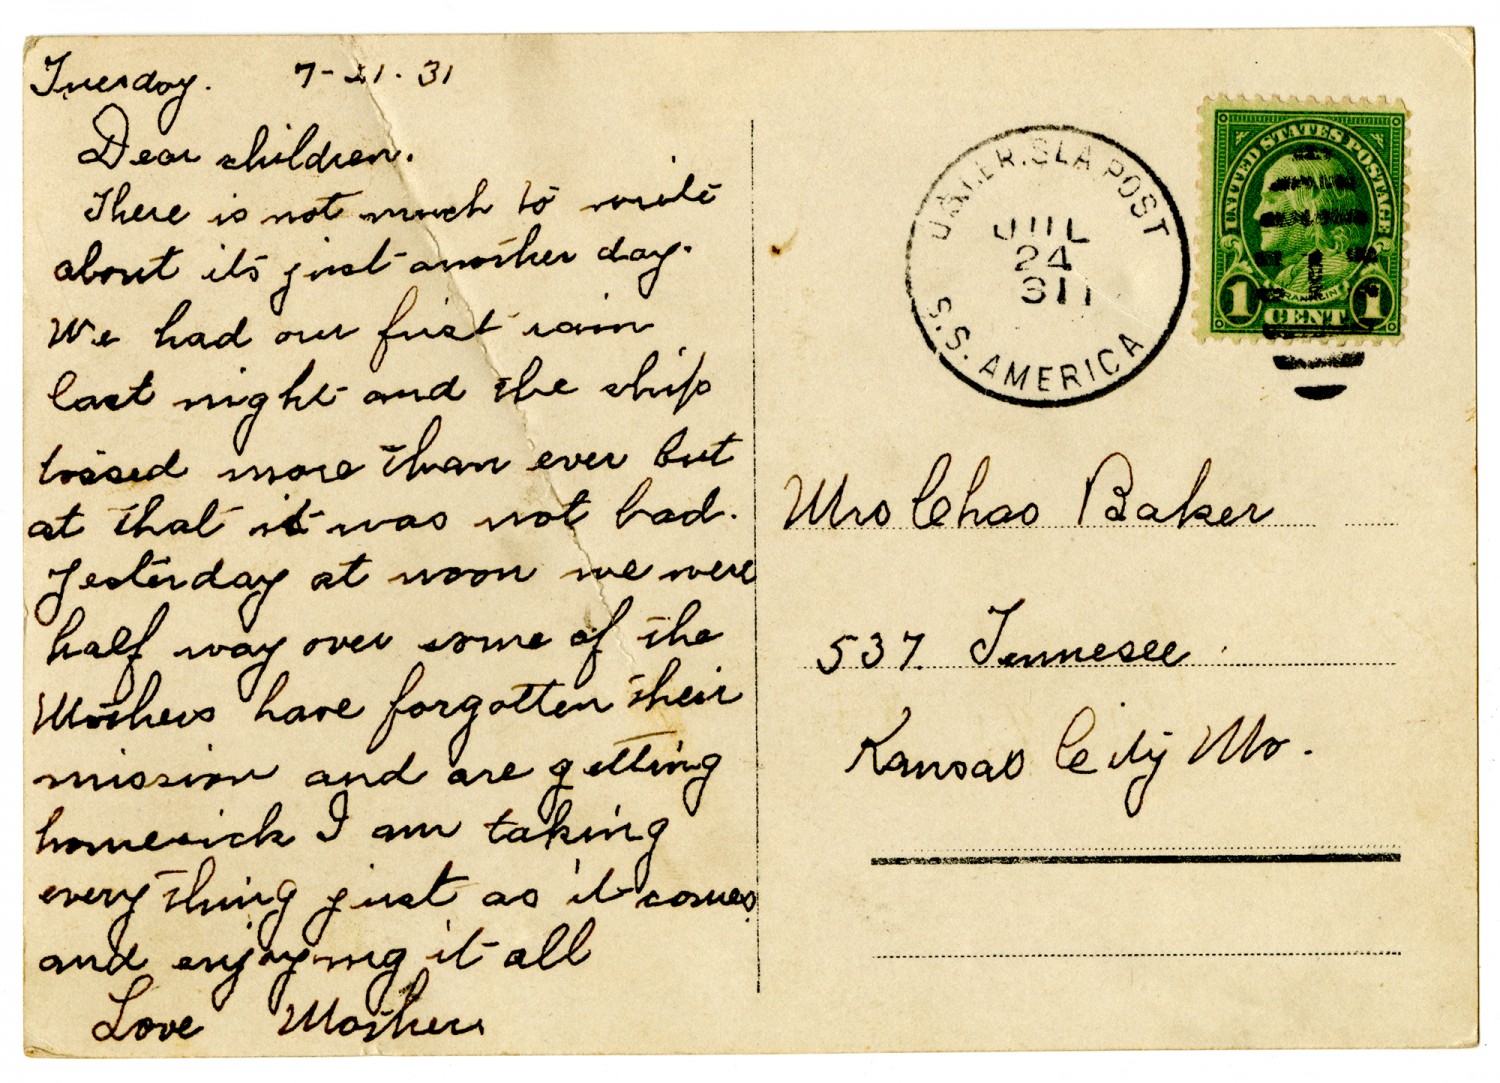 Tuesday. 7-21-31
Dear children.
There is not much to write
about its just another day.
We had our first rain
last night and the ship
tossed more than ever but
at that it was not bad.
Yesterday at noon we were
half way over some of the
Mothers have forgotten their
mission and are getting
homesick I am taking
every thing just as it comes
and enjoying it all
Love Mother
SEA POST
JUL
24
31
S.S. AMERICA
UNITED STATES POSTAGE
FRANKLIN
1 CENT 1
Mrs Chas Baker
537 Tennesee
Kansas City Mo.